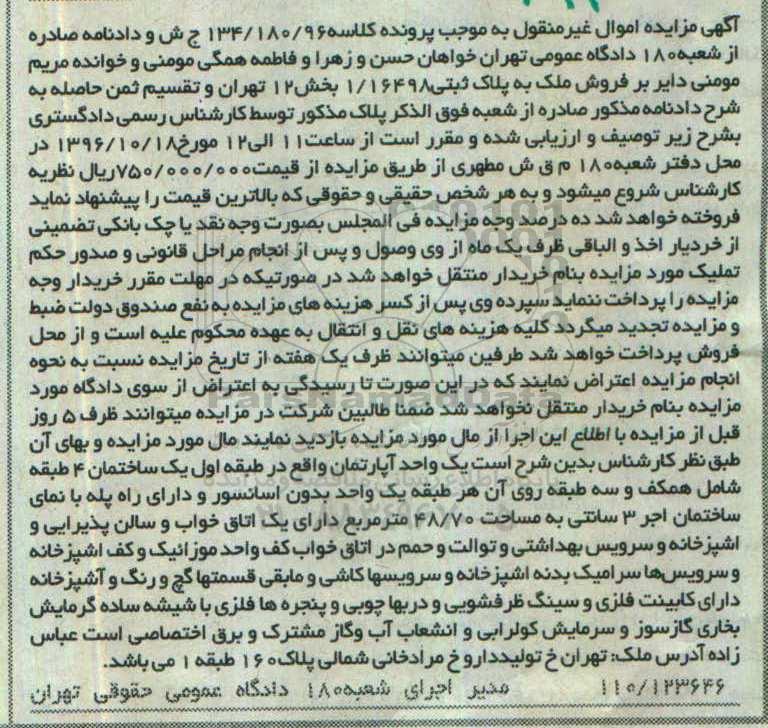 آگهی مزایده اموال غیرمنقول به موجب پرونده کلاسه۱۳۴/۱۸۰/۹۶ ج ش و دادنامه صادره
از شعبه۱۸۰ دادگاه عمومی تهران خواهان حسن و زهرا و فاطمه همگی مومنی و خوانده مریم
مومنی دایر بر فروش ملک به پلاک ثبتی۱/۱۶۴۹۸ بخش۱۲ تهران و تقسیم ثمن حاصله به
شرح دادنامه مذکور صادره از شعبه فوق الذکر پلاک مذکور توسط کارشناس رسمی دادگستری
بشرح زیر توصیف و ارزیابی شده و مقرر است از ساعت۱۱ الی۱۲ مورخ۱۳۹۶/۱۰/۱۸ در
محل دفتر شعبه۱۸۰ م ق ش مطهری از طریق مزایده از قیمت۷۵۰/۰۰۰/۰۰۰ریال نظریه
کارشناس شروع میشود و به هر شخص حقیقی و حقوقی که بالاترین قیمت را پیشنهاد نماید
فروخته خواهد شد ده درصد وجه مزایده فی المجلس بصورت وجه نقد یا چک بانکی تضمینی
از خردیار اخذ و الباقی ظرف یک ماه از وی وصول و پس از انجام مراحل قانونی و صدور حکم
تملیک مورد مزایده بنام خریدار منتقل خواهد شد در صورتیکه در مهلت مقرر خریدار وجه
مزایده را پرداخت ننماید سپرده وی پس از کسر هزینه های مزایده به نفع صندوق دولت ضبط
و مزایده تجدید میگردد کلیه هزینه های نقل و انتقال به عهده محکوم علیه است و از محل
فروش پرداخت خواهد شد طرفین میتوانند ظرف یک هفته از تاریخ مزایده نسبت به نحوه
انجام مزایده اعتراض نمایند که در این صورت تا رسیدگی به اعتراض از سوی دادگاه مورد
مزایده بنام خریدار منتقل نخواهد شد ضمنا طالبین شرکت در مزایده میتوانند ظرف ۵ روز
قبل از مزایده با اطلاع این اجرا از مال مورد مزایده بازدید نمایند مال مورد مزایده و بهای آن
طبق نظر کارشناس بدین شرح است یک واحد آپارتمان واقع در طبقه اول یک ساختمان ۴ طبقه
شامل همکف و سه طبقه روی آن هر طبقه یک واحد بدون اسانسور و دارای راه پله با نمای
ساختمان اجر ۳ سانتی به مساحت ۴۸/۷۰ مترمربع دارای یک اتاق خواب و سالن پذیرایی و
اشپزخانه و سرویس بهداشتی و توالت و حمم در اتاق خواب کف واحد موزائیک و کف اشپزخانه
و سرویس‌ها سرامیک بدنه اشپزخانه و سرویسها کاشی و مابقی قسمتها گچ و رنگ و آشپزخانه
دارای کابینت فلزی و سینگ ظرفشویی و دربها چوبی و پنجره ها فلزی با شیشه ساده گرمایش
بخاری گازسوز و سرمایش کولرابی و انشعاب آب وگاز مشترک و برق اختصاصی است عباس
زاده آدرس ملک: تهران خ تولیددارو خ مرادخانی شمالی پلاک۱۶۰ طبقه۱ می باشد.
۱۱۰/۱۲۳۶۴۶ مدیر اجرای شعبه۱۸۰ دادگاه عمومی حقوقی تهران
ParsNamadData